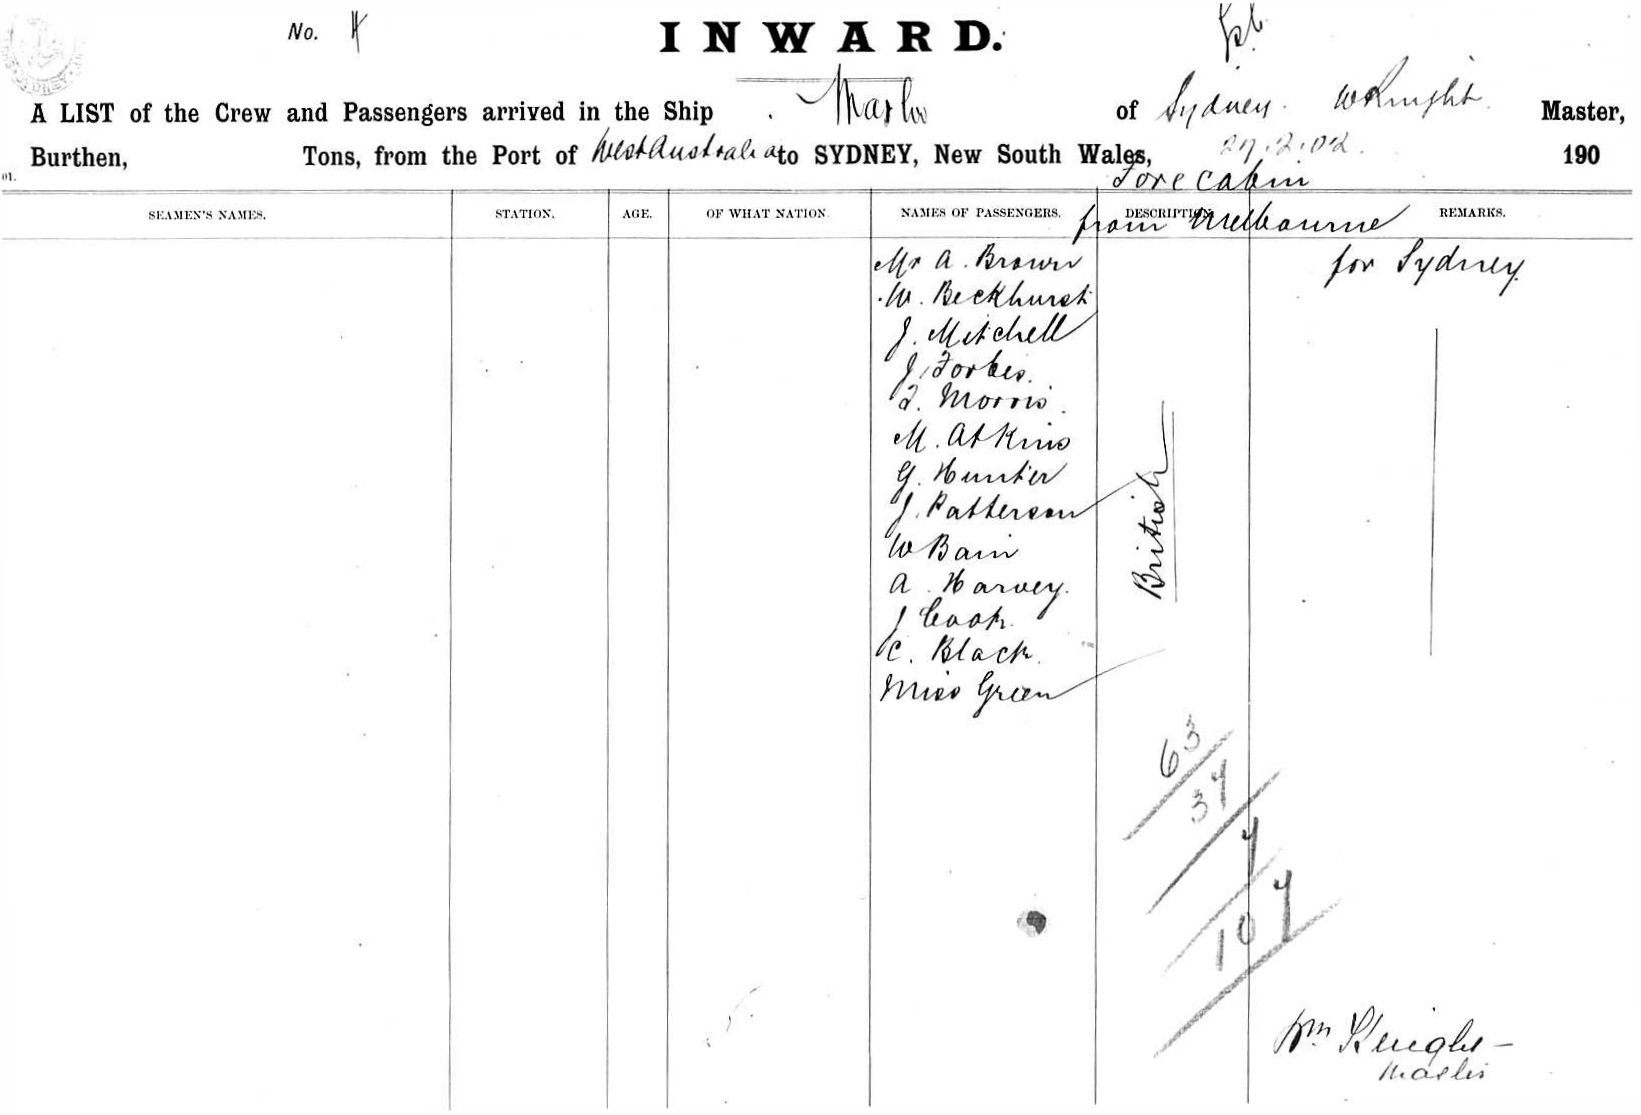 No. 4
INWARD.
Feb
A LIST of the Crew and Passengers arrived in the Ship Marloo of Sydney. W Knight. Master,
Burthen, Tons, from the Port of West Australia to SYDNEY, New South Wales, 27.2.02. 190
01.
Fore cabin
SEAMEN'S NAMES. STATION. AGE. OF WHAT NATION. NAMES OF PASSENGERS. DESCRIPTION. REMARKS.
from Melbourne
for Sydney.
Mr A. Brown
W. Beckhurst
J. Mitchell
J. Forbes.
F. Morris.
M. Atkins
G. Hunter
J. Patterson
W Bain
A. Harvey.
J Cook.
C. Black.
Miss Green
British
63
37
7
107
Wm Knight
Master